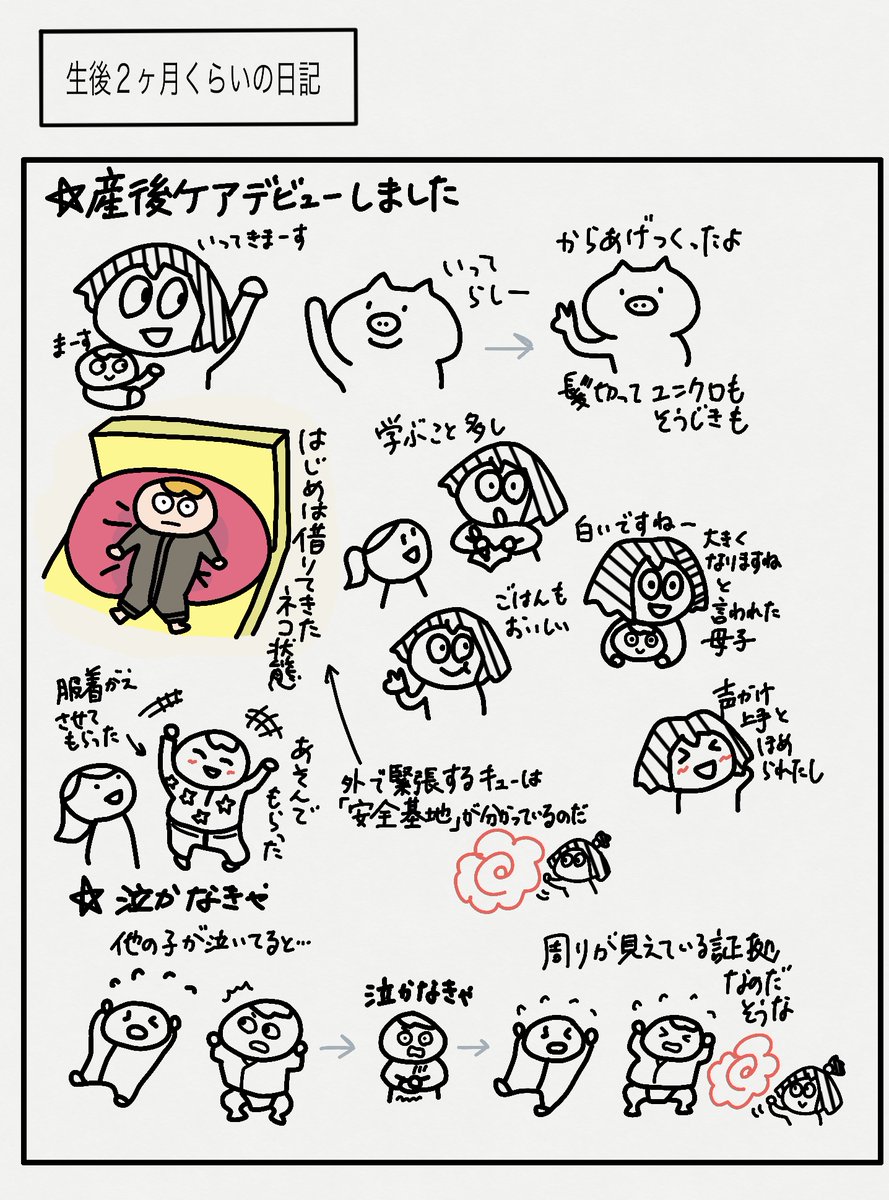 生後2ヶ月くらいの日記
☆産後ケアデビューしました
いってきまーす
まーす
いって
らしー
からあげつくったよ
髪切ってユニクロも
そうじきも
はじめは借りてきた
ネコ状態
学ぶこと多し
ごはんも
おいしい
白いですねー
大きく
なりますね
と
言われた
母子
服着がえ
させて
もらった
あそんで
もらった
外で緊張するキューは
「安全基地」が分かっているのだ
声かけ
上手と
ほめ
られたし
☆泣かなきゃ
他の子が泣いてると…
泣かなきゃ
周りが見えている証拠
なのだ
そうな